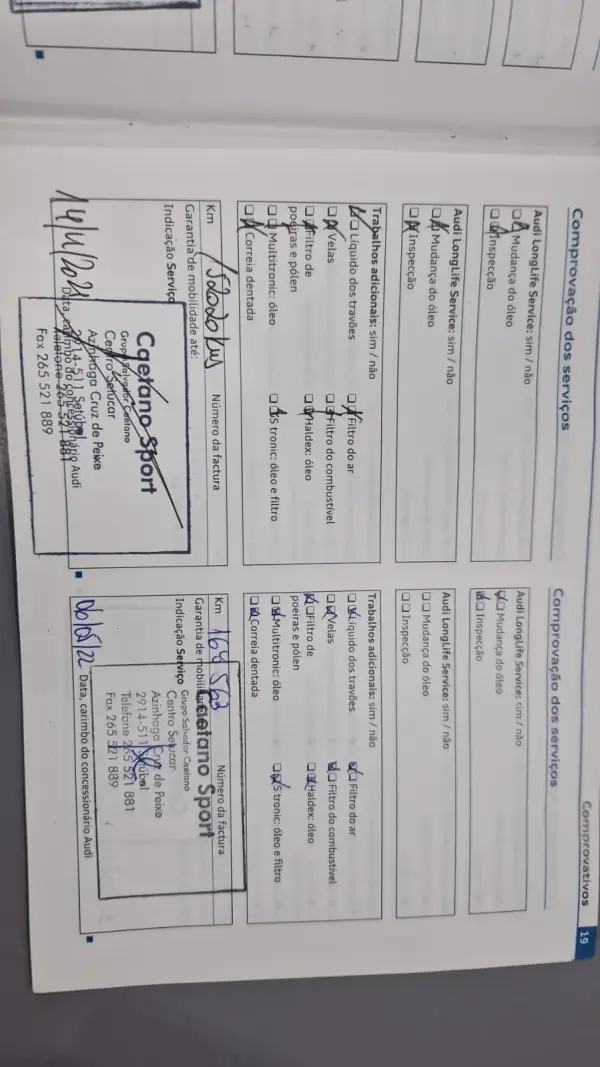 Comprovativos 19
Comprovação dos serviços
Audi LongLife Service: sim / não
Mudança do óleo
Inspecção
Audi LongLife Service: sim / não
Mudança do óleo
Inspecção
Trabalhos adicionais: sim / não
Líquido dos travões
Filtro do ar
Velas
Filtro do combustível
Filtro de
poeiras e pólen
Haldex: óleo
Multitronic: óleo
S tronic: óleo e filtro
Correia dentada
Km
Número da factura
Garantia de mobilidade até:
Indicação Serviço
Caetano Sport
Grupo Salvador Caetano
Centro Setucar
Azinhaga Cruz de Peixe
2914-511 Setúbal
Telefone 265 521 881
Fax 265 521 889
Data, carimbo do concessionário Audi
Comprovação dos serviços
Audi LongLife Service: sim / não
Mudança do óleo
Inspecção
Audi LongLife Service: sim / não
Mudança do óleo
Inspecção
Trabalhos adicionais: sim / não
Líquido dos travões
Filtro do ar
Velas
Filtro do combustível
Filtro de
poeiras e pólen
Haldex: óleo
Multitronic: óleo
S tronic: óleo e filtro
Correia dentada
Km 164 563
Número da factura
Garantia de mobili
Indicação Serviço
Caetano Sport
Grupo Salvador Caetano
Centro Setucar
Azinhaga Cruz de Peixe
2914-511 Setúbal
Telefone 265 521 881
Fax 265 521 889
06/05/22
Data, carimbo do concessionário Audi